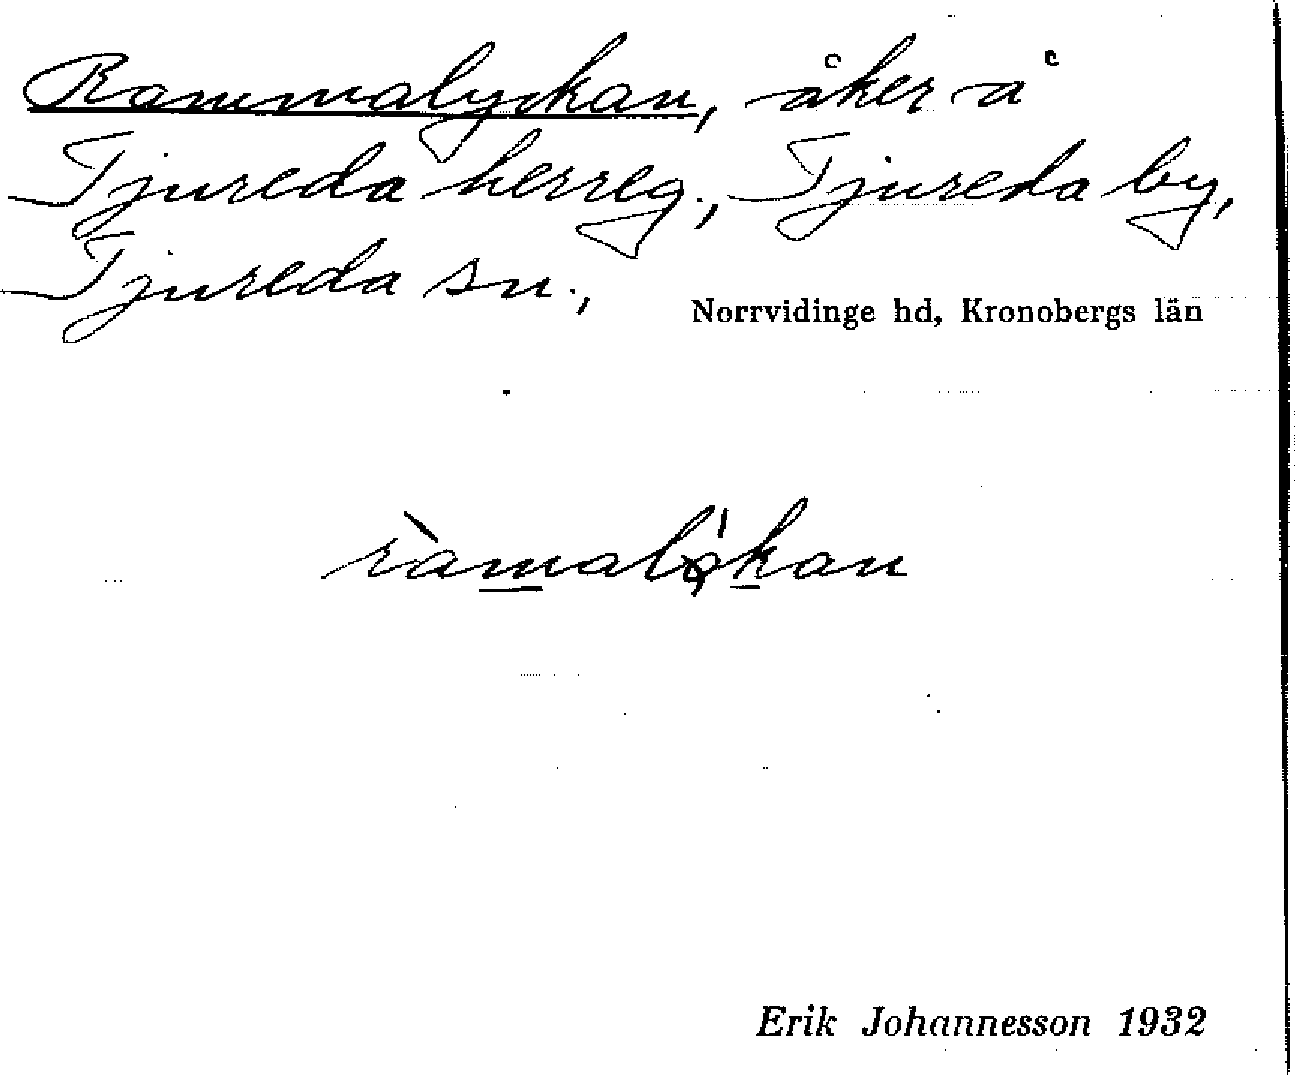 Rammalyckan, åker å
Tjureda herreg., Tjureda by,
Tjureda sn.,
Norrvidinge hd, Kronobergs län
ràmalǿkan
Erik Johannesson 1932